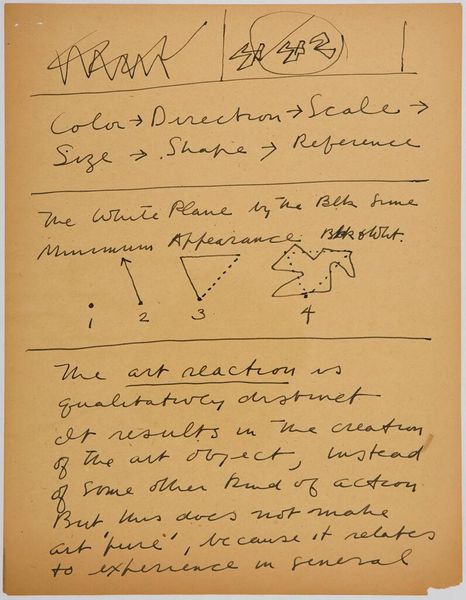 Color → Direction → Scale →
Size → Shape → Reference
The White Plane by the Blk
Minimum Appearance Blk & Wht.
1 2 3 4
The art reaction is
qualitatively distinct
It results in the creation
of the art object, instead
of some other kind of action
But this does not make
art "pure", because it relates
to experience in general